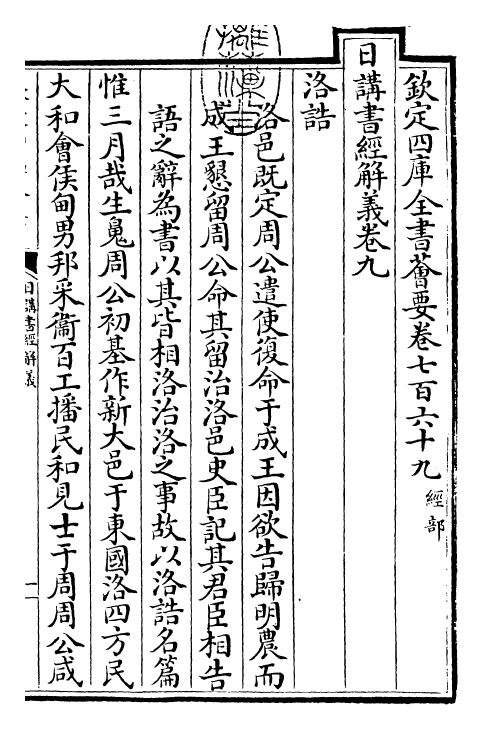 欽定四庫全書薈要卷七百六十九 經部
日講書經解義卷九
洛誥
洛邑既定周公遣使復命于成王因欲告歸明農而
成王懇留周公命其留治洛邑史臣記其君臣相告
語之辭為書以其皆相洛治洛之事故以洛誥名篇
惟三月哉生魄周公初基作新大邑于東國洛四方民
大和會侯甸男邦采衞百工播民和見士于周周公咸
日講書經解義
一